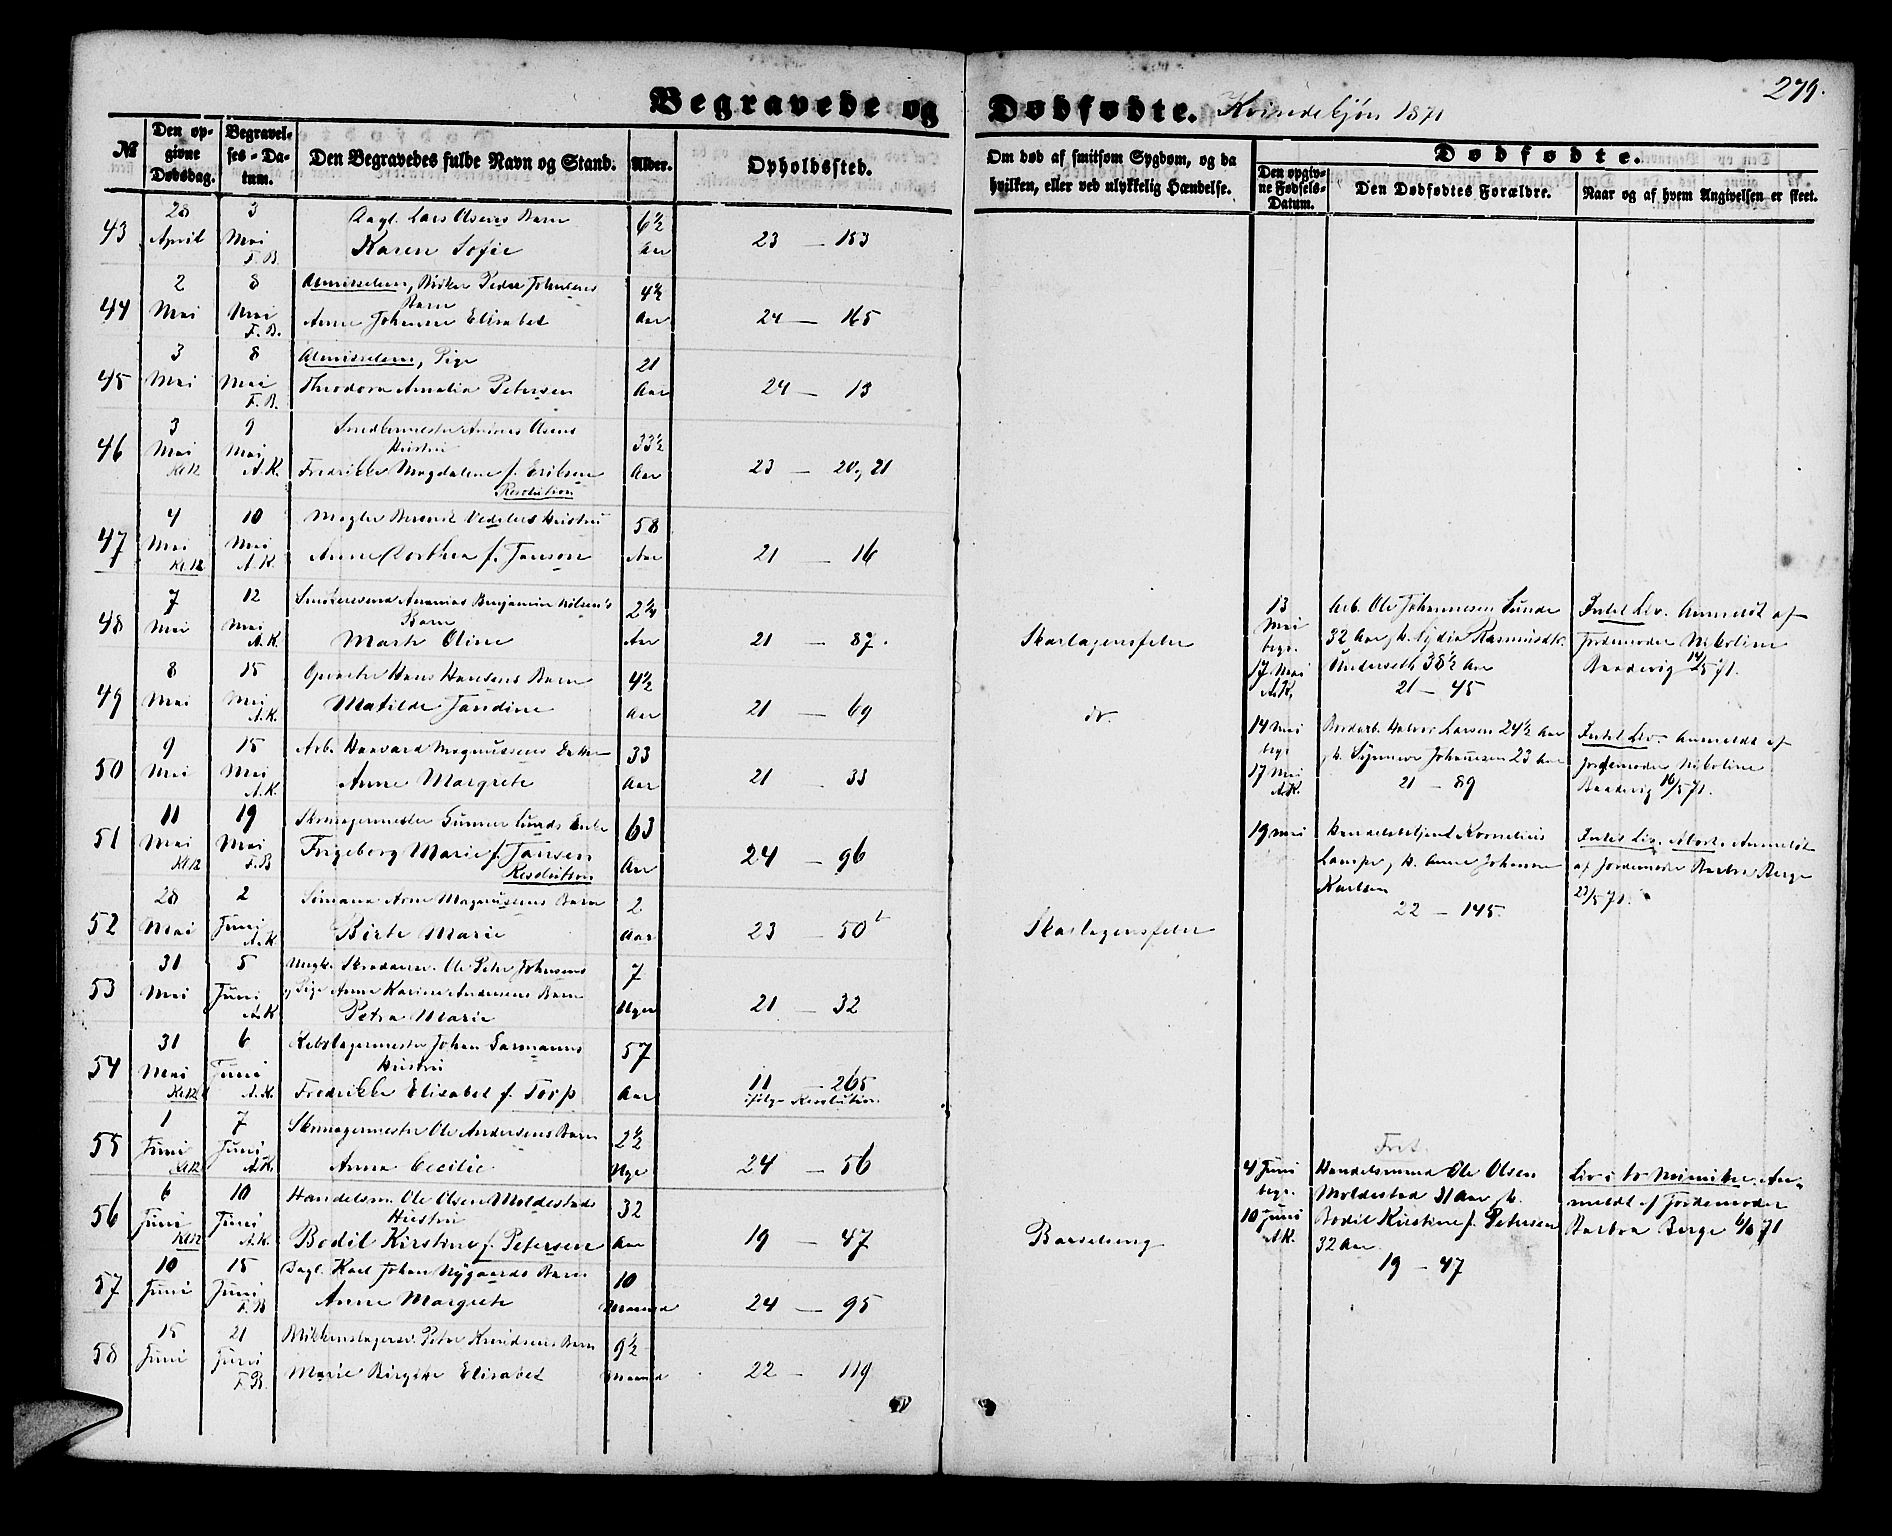 279.
Begravede og Dødfødte. Kvindekjøn 1871
№
Den opgivne Dødsdag.
Begravelses-Datum.
Den Begravedes fulde Navn og Stand.
Alder.
Opholdssted.
Om død af smitsom Sygdom, og da hvilken, eller ved ulykkelig Hændelse.
Dødfødte.
Den opgivne Fødsels-Datum.
Den Dødfødtes Forældre.
Naar og af hvem Angivelsen er skeet.
43 28 April 3 Mai F.B. Dagl. Lars Olsens Barn 6½ Aar 23 — 153
Karen Sofie
44 2 Mai 8 Mai F.B. Almisselem, Peder Johnsens Barn 4½ Aar 24 — 165
Anne Johanne Elisabet
45 3 Mai 8 Mai F.B. Almisselem, Pige 21 Aar 24 — 13
Theodora Amalia Petersen
46 3 Mai Kl.12 9 Mai A.K. Snedkermester Olsens Hustru 33½ Aar 23 — 20, 21
Fredrikke Magdalene f. Eriksen
Resolution
47 4 Mai Kl.12 10 Mai A.K. Mægler Berent Vedelers Hustru 58 Aar 21 — 16
Anne Dorthea f. Jansen
48 7 Mai 12 Mai A.K. Ananias Benjamin Nilsen's Barn 2¼ Aar 21 — 87. Skarlagensfeber
Marte Oline
49 8 Mai 15 Mai A.K. Hans Hansens Barn 4½ Aar 21 — 69 do.
Matilde Jandine
50 9 Mai 15 Mai A.K. Arb. Haavard Magnussens Datter 33 Aar 21 — 33
Anne Margrete
51 11 Mai Kl.12 19 Mai F.B. Skomagermester Gunner Lunds Enke 63 Aar 24 — 96
Ingeborg Marie f. Jansen
Resolution
52 28 Mai 2 Juni A.K. Sømand Arne Magnussens Barn 2 Aar 23 — 50 Skarlagensfeber
Birte Marie
53 31 Mai 5 Juni A.K. Ungk. Ole Peter Johnsens 7 Uger 21 — 32
og Pige Anne Karine Andersens Barn
Petra Marie
54 31 Mai Kl.12 6 Juni A.K. Rebslagermester Johan Garmanns Hustru 57 Aar 11 — 265
Fredrikke Elisabet f. Torp ifølge Resolution
55 1 Juni Kl.12 7 Juni A.K. Skomagermester Ole Andersens Barn 2½ Uge 24 — 56
Anna Cecilie
56 6 Juni Kl.12 10 Juni A.K. Handelsm. Ole Olsen Moldestads Hustru 32 Aar 19 — 47 Barselseng
Bodil Kirstine f. Petersen
57 10 Juni 15 Juni F.B. Dagl. Karl Johan Nygaards Barn 10 Maaned 24 — 95
Anne Margrete
58 15 Juni 21 Juni F.B. Blikkenslagersv. Peter Knudsens Barn 9½ Maaned 22 — 119
Marie Birgitte Elisabet
13 Mai begr. 17 Mai A.K.
Arb. Ole Johannesen Lunde
32 Aar, h. Lydia Rasmusdtr.
38½ Aar
21 — 45
Intet Liv. Anmeldt af
Jordemoder Nikoline
Baadevig 14/5 71.
14 Mai begr 17 Mai A.K.
Halvor Larsen 24½ Aar
h. Synneve Johannesen 23 Aar
21 — 89
Intet Liv. Anmeldt af
Jordemoder Nikoline
Baadevig 16/5 71.
19 Mai
Handelsbetjent Kornelius
Lampe, h. Anne Johanne
Karlsen
22 — 145.
Intet Liv. Abort. Anmeldt
af Jordemoder Barbra Berge
22/5 71.
4 Juni begr. 10 Juni A.K.
Handelsmand Ole Olsen
Moldestad 31 Aar, h.
Bodil Kirstine f. Petersen
32 Aar.
19 — 47
Liv i to Minuter. Anmeldt af Jordemoder
Barbra Berge 6/6 71